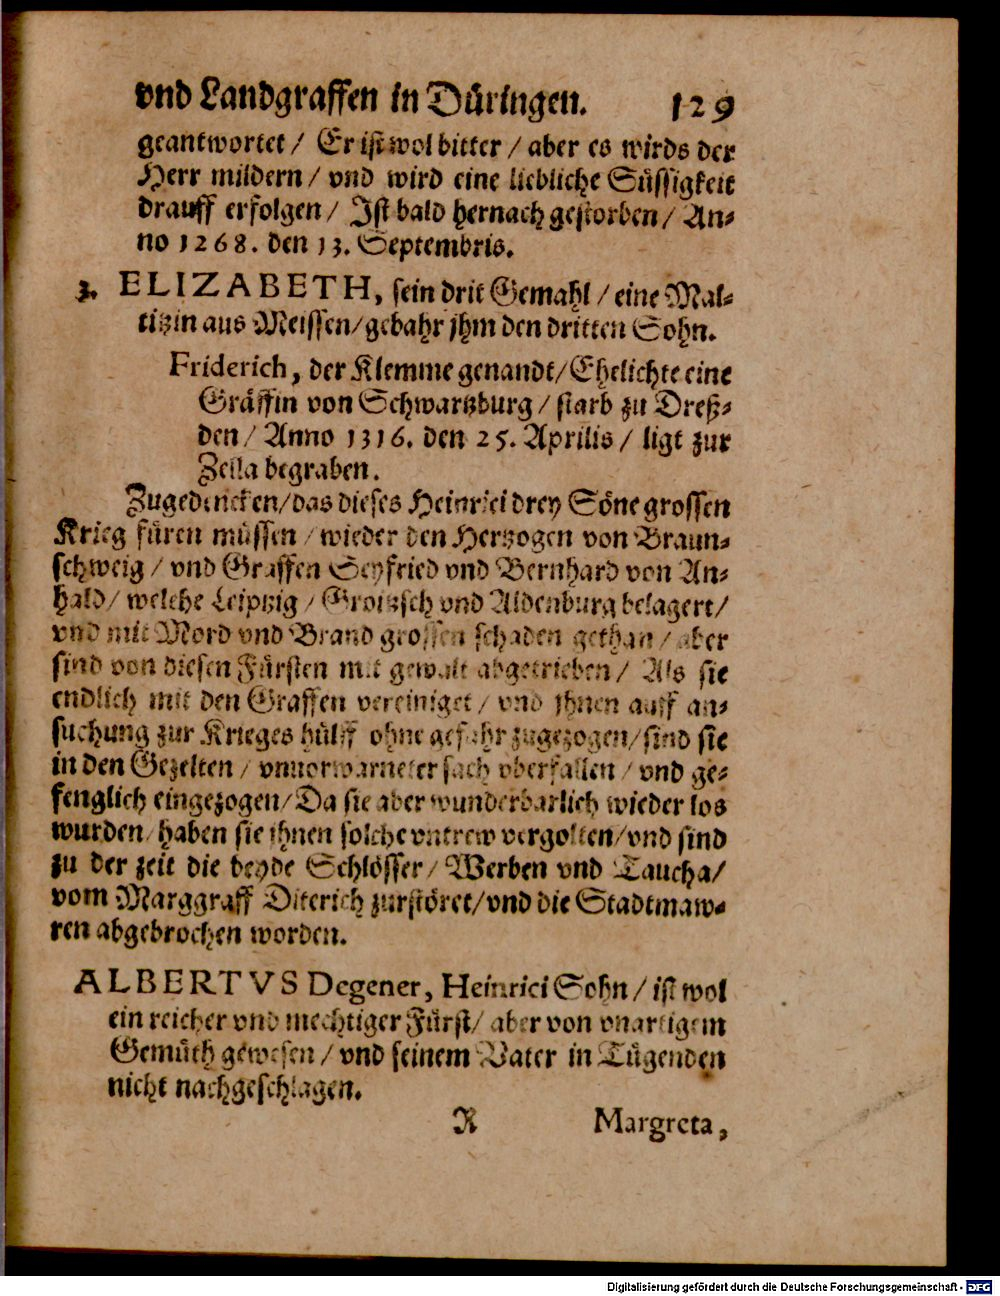 vnd Landgraffen in Düringen. 129
geantwortet / Er ist wol bitter / aber es wirds der
Herr mildern / vnd wird eine liebliche Süssigkeit
drauff erfolgen / Ist bald hernach gestorben / An-
no 1268. den 13. Septembris.
3. ELIZABETH, sein drit Gemahl / eine Mal-
titzin aus Meissen / gebahr jhm den dritten Sohn.
Friderich, der Klemme genandt / Ehelichte eine
Gräffin von Schwartzburg / starb zu Dreß-
den / Anno 1316. den 25. Aprilis / ligt zur
Zella begraben.
Zugedencken / das dieses Heinrici drey Söne grossen
Krieg füren müssen / wieder den Hertzogen von Braun-
schweig / vnd Graffen Seyfried vnd Bernhard von An-
hald / welche Leiptzig / Groitzsch vnd Aldenburg belagert /
vnd mit Mord vnd Brand grossen schaden gethan / aber
sind von diesen Fürsten mit gewalt abgetrieben / Als sie
endlich mit den Graffen vereiniget / vnd jhnen auff an-
suchung zur Krieges hülff ohne gefahr zugezogen / sind sie
in den Gezelten / vnuorwarneter sach vberfallen / vnd ge-
fenglich eingezogen / Da sie aber wunderbarlich wieder los
wurden / haben sie ihnen solche vntrew vergolten / vnd sind
zu der zeit die beyde Schlösser / Werben vnd Taucha /
vom Marggraff Diterich zurstöret / vnd die Stadtmaw-
ren abgebrochen worden.
ALBERTVS Degener, Heinrici Sohn / ist wol
ein reicher vnd mechtiger Fürst / aber von vnartigem
Gemüth gewesen / vnd seinem Vater in Tügenden
nicht nachgeschlagen.
R Margreta,
Digitalisierung gefördert durch die Deutsche Forschungsgemeinschaft - DFG